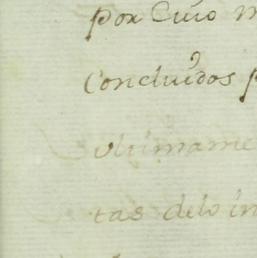 por Cuio m
Concluidos p
ultimame
tas delo in